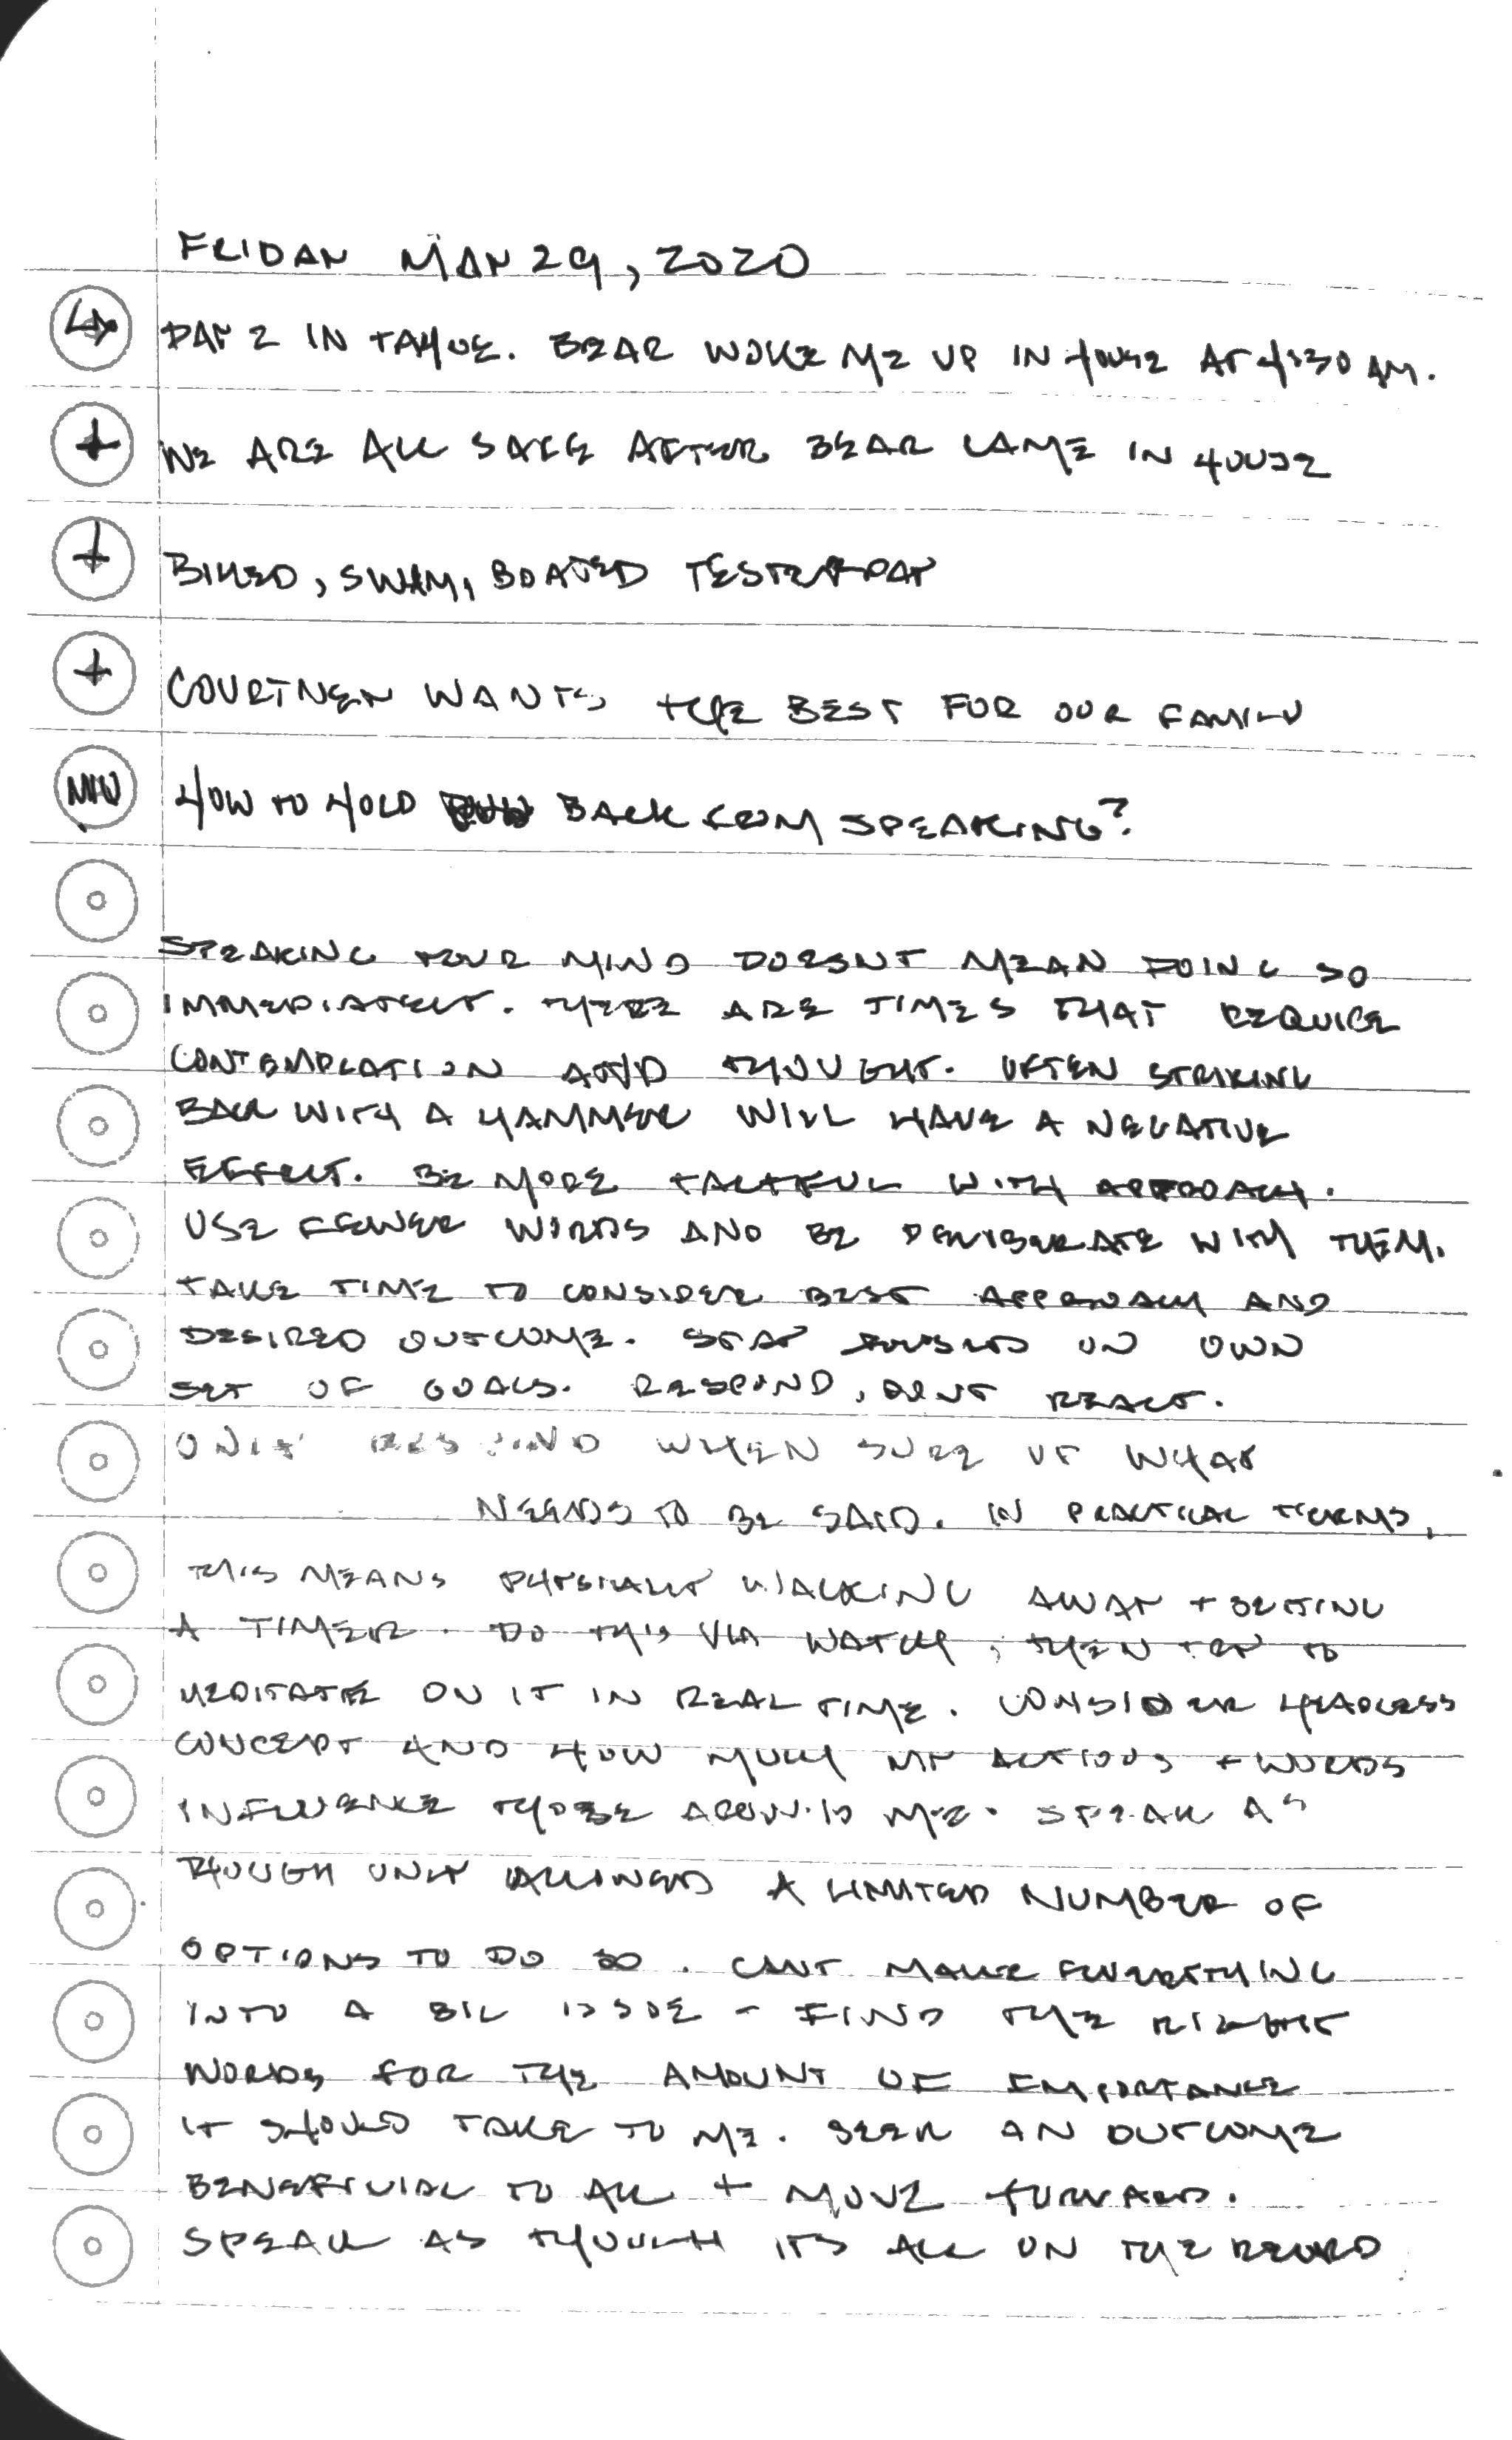 FRIDAY MAY 29, 2020
↳ DAY 2 IN TAHOE. BEAR WOKE ME UP IN HOUSE AT 4:30 AM.
+ WE ARE ALL SAFE AFTER BEAR CAME IN HOUSE
+ BIKED, SWAM, BOATED YESTERDAY
+ COURTNEY WANTS THE BEST FOR OUR FAMILY
HOW TO HOLD BACK FROM SPEAKING?
SPEAKING YOUR MIND DOESNT MEAN DOING SO
IMMEDIATELY. THERE ARE TIMES THAT REQUIRE
CONTEMPLATION AND THOUGHT. OFTEN STRIKING
BACK WITH A HAMMER WILL HAVE A NEGATIVE
EFFECT. BE MORE TACTFUL WITH APPROACH.
USE FEWER WORDS AND BE DELIBERATE WITH THEM.
TAKE TIME TO CONSIDER BEST APPROACH AND
DESIRED OUTCOME. STAY FOCUSED ON OWN
SET OF GOALS. RESPOND, DONT REACT.
ONLY RESPOND WHEN SURE OF WHAT
NEEDS TO BE SAID. IN PRACTICAL TERMS,
THIS MEANS PHYSICALLY WALKING AWAY + SETTING
A TIMER. DO THIS VIA WATCH, THEN TRY TO
MEDITATE ON IT IN REAL TIME. CONSIDER HEADLESS
CONCEPT AND HOW MUCH MY ACTIONS + WORDS
INFLUENCE THOSE AROUND ME. SPEAK AS
THOUGH ONLY ALLOWED A LIMITED NUMBER OF
OPTIONS TO DO SO. CANT MAKE EVERYTHING
INTO A BIG ISSUE - FIND THE RIGHT
WORDS FOR THE AMOUNT OF IMPORTANCE
IT SHOULD TAKE TO ME. SEEK AN OUTCOME
BENEFICIAL TO ALL + MOVE FORWARD.
SPEAK AS THOUGH ITS ALL ON THE RECORD